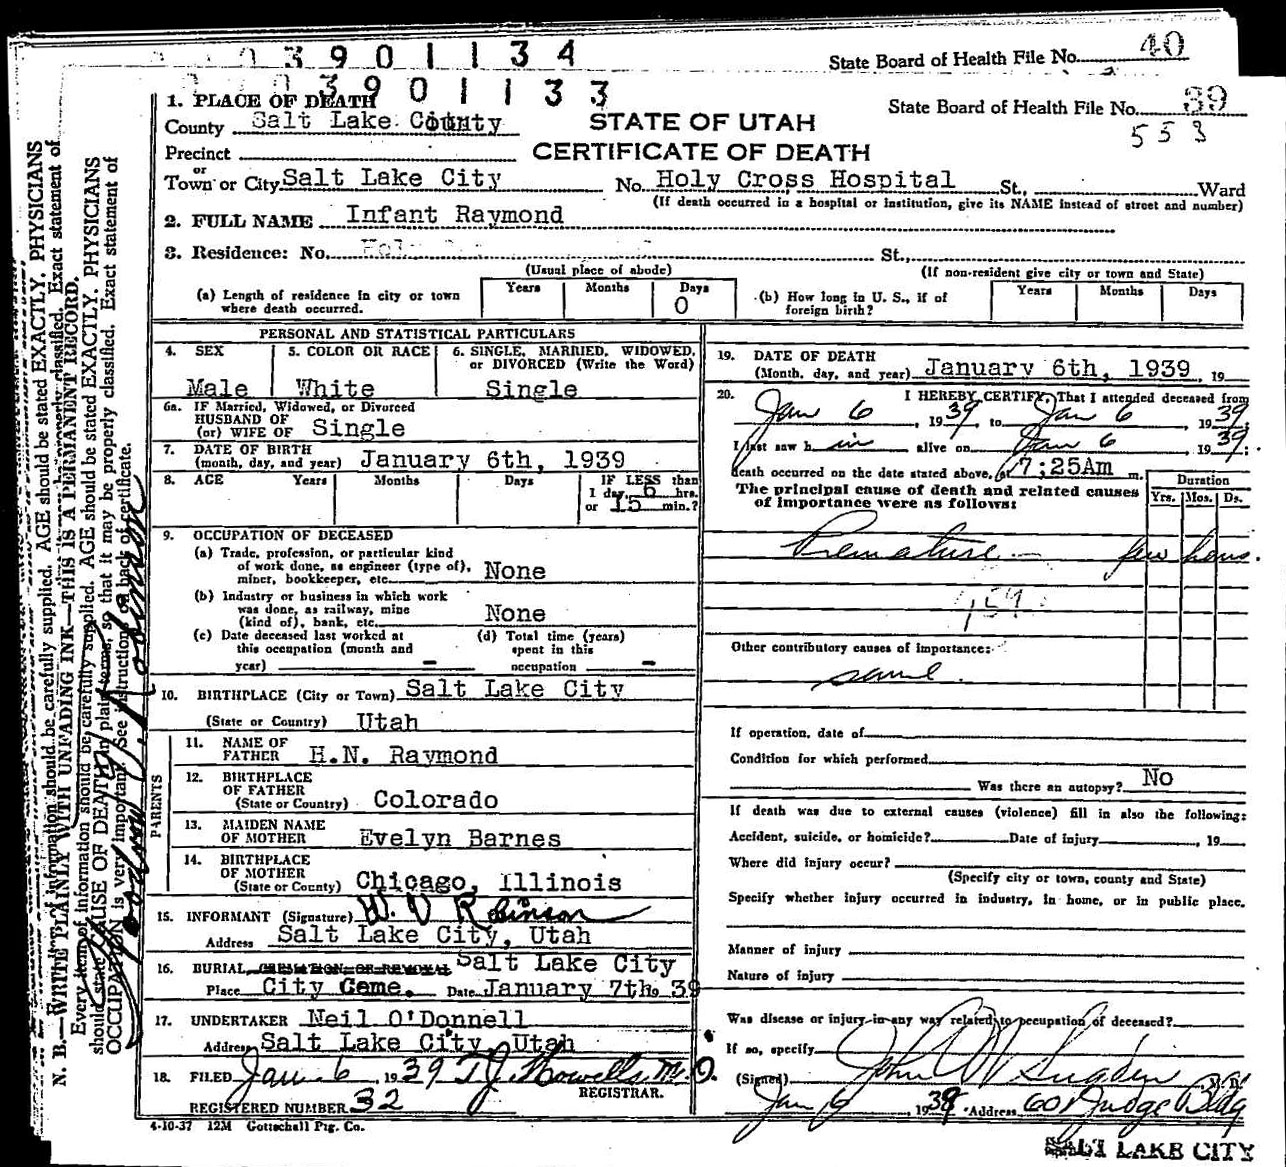 03901134
State Board of Health File No. 40
03901133
State Board of Health File No. 39
553
STATE OF UTAH
CERTIFICATE OF DEATH
1. PLACE OF DEATH
County Salt Lake County
Precinct
or
Town or City Salt Lake City No. Holy Cross Hospital St., Ward
(If death occurred in a hospital or institution, give its NAME instead of street and number)
2. FULL NAME Infant Raymond
3. Residence: No. St.,
(Usual place of abode) (If non-resident give city or town and State)
(a) Length of residence in city or town where death occurred. Years Months Days 0
(b) How long in U. S., if of foreign birth? Years Months Days
PERSONAL AND STATISTICAL PARTICULARS
4. SEX 5. COLOR OR RACE 6. SINGLE, MARRIED, WIDOWED, or DIVORCED (Write the Word)
Male White Single
6a. IF Married, Widowed, or Divorced
HUSBAND OF
(or) WIFE OF Single
7. DATE OF BIRTH
(month, day, and year) January 6th, 1939
8. AGE Years Months Days IF LESS than
1 day, 6 hrs.
or 15 min.?
9. OCCUPATION OF DECEASED
(a) Trade, profession, or particular kind
of work done, as engineer (type of),
miner, bookkeeper, etc. None
(b) Industry or business in which work
was done, as railway, mine
(kind of), bank, etc. None
(c) Date deceased last worked at
this occupation (month and
year) -
(d) Total time (years)
spent in this
occupation -
10. BIRTHPLACE (City or Town) Salt Lake City
(State or Country) Utah
PARENTS
11. NAME OF
FATHER H.N. Raymond
12. BIRTHPLACE
OF FATHER
(State or Country) Colorado
13. MAIDEN NAME
OF MOTHER Evelyn Barnes
14. BIRTHPLACE
OF MOTHER
(State or County) Chicago, Illinois
15. INFORMANT (Signature) W. V Robinson
Address Salt Lake City, Utah
16. BURIAL, CREMATION OR REMOVAL Salt Lake City
Place City Ceme. Date January 7th, 39
17. UNDERTAKER Neil O'Donnell
Address Salt Lake City, Utah
18. FILED Jan. 6 1939 T.J. Howells M.D.
REGISTRAR.
REGISTERED NUMBER 32
4-10-37 12M Gottschall Ptg. Co.
19. DATE OF DEATH
(Month, day, and year) January 6th, 1939, 19
20. I HEREBY CERTIFY, That I attended deceased from
Jan 6, 1939, to Jan 6, 1939
I last saw him alive on Jan 6, 1939;
death occurred on the date stated above, at 7:25Am m.
The principal cause of death and related causes
of importance were as follows:
Duration
Yrs. Mos. Ds.
Premature - few hours.
159
Other contributory causes of importance:
same.
If operation, date of
Condition for which performed
Was there an autopsy? No
If death was due to external causes (violence) fill in also the following:
Accident, suicide, or homicide? Date of injury, 19
Where did injury occur?
(Specify city or town, county and State)
Specify whether injury occurred in industry, in home, or in public place.
Manner of injury
Nature of injury
Was disease or injury in any way related to occupation of deceased?
If so, specify
(Signed) John W Sugden M. D.
Jan 6, 1939 Address 601 Judge Bldg
SALT LAKE CITY
N. B.—WRITE PLAINLY WITH UNFADING INK—THIS IS A PERMANENT RECORD.
Every item of information should be carefully supplied. AGE should be stated EXACTLY. PHYSICIANS
should state CAUSE OF DEATH in plain terms, so that it may be properly classified. Exact statement of
OCCUPATION is very important. See instructions on back of certificate.